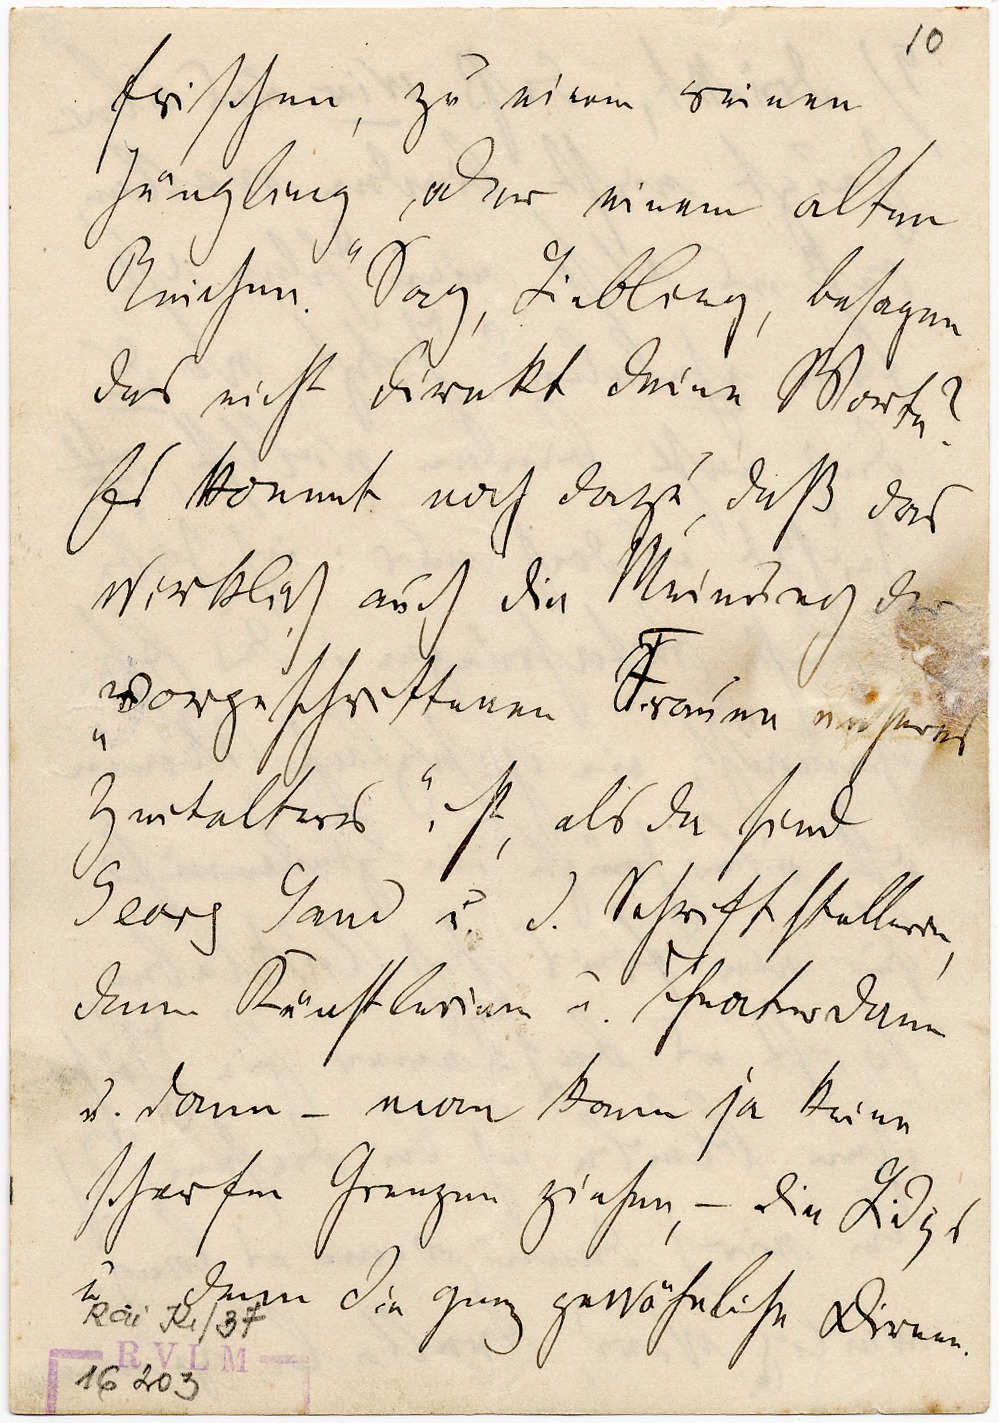 10
frischen, zu einem reinen
Jüngling, oder einem alten
Reichen." Sag, Liebling, besagen
das nicht direkt deine Worte?
Es kommt noch dazu, daß das
wirklich auch die Meinung der
„vorgeschrittenen Frauen unseres
Zeitalters" ist, als da sind
Georg Sand u. d. Schriftstellerin,
dann Künstlerinen u. Theaterdam
u. dann – man kann ja keine
scharfen Grenzen ziehen, – die Lidys
u dann die ganz gewöhnliche Dirnen.
Rai /37
RVLM
16 203